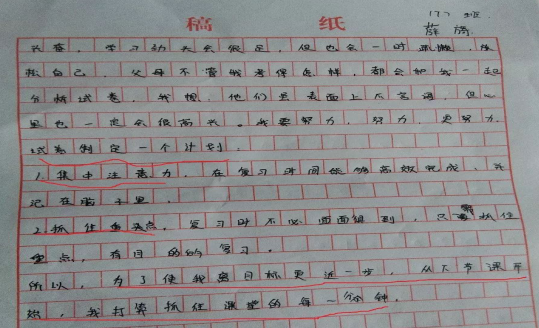 稿 纸
177 班
薛 涛
长喜，学习劲头会很足，但也会一时疏懒，放
松自己。父母不管我考得怎样，都会和我一起
分析试卷。我想，他们虽表面上不言语，但心
里也一定会很高兴。我要努力，努力，更努力
试卷制定一个计划。
1.集中注意力，在复习时间能够高效完成，并
记在脑子里。
2.抓住重点，复习时不必面面俱到，只需抓住
重点，有目的的复习。
所以，为了使我离目标更近一步，从下节课开
始，我打算抓住课堂的每一分钟。